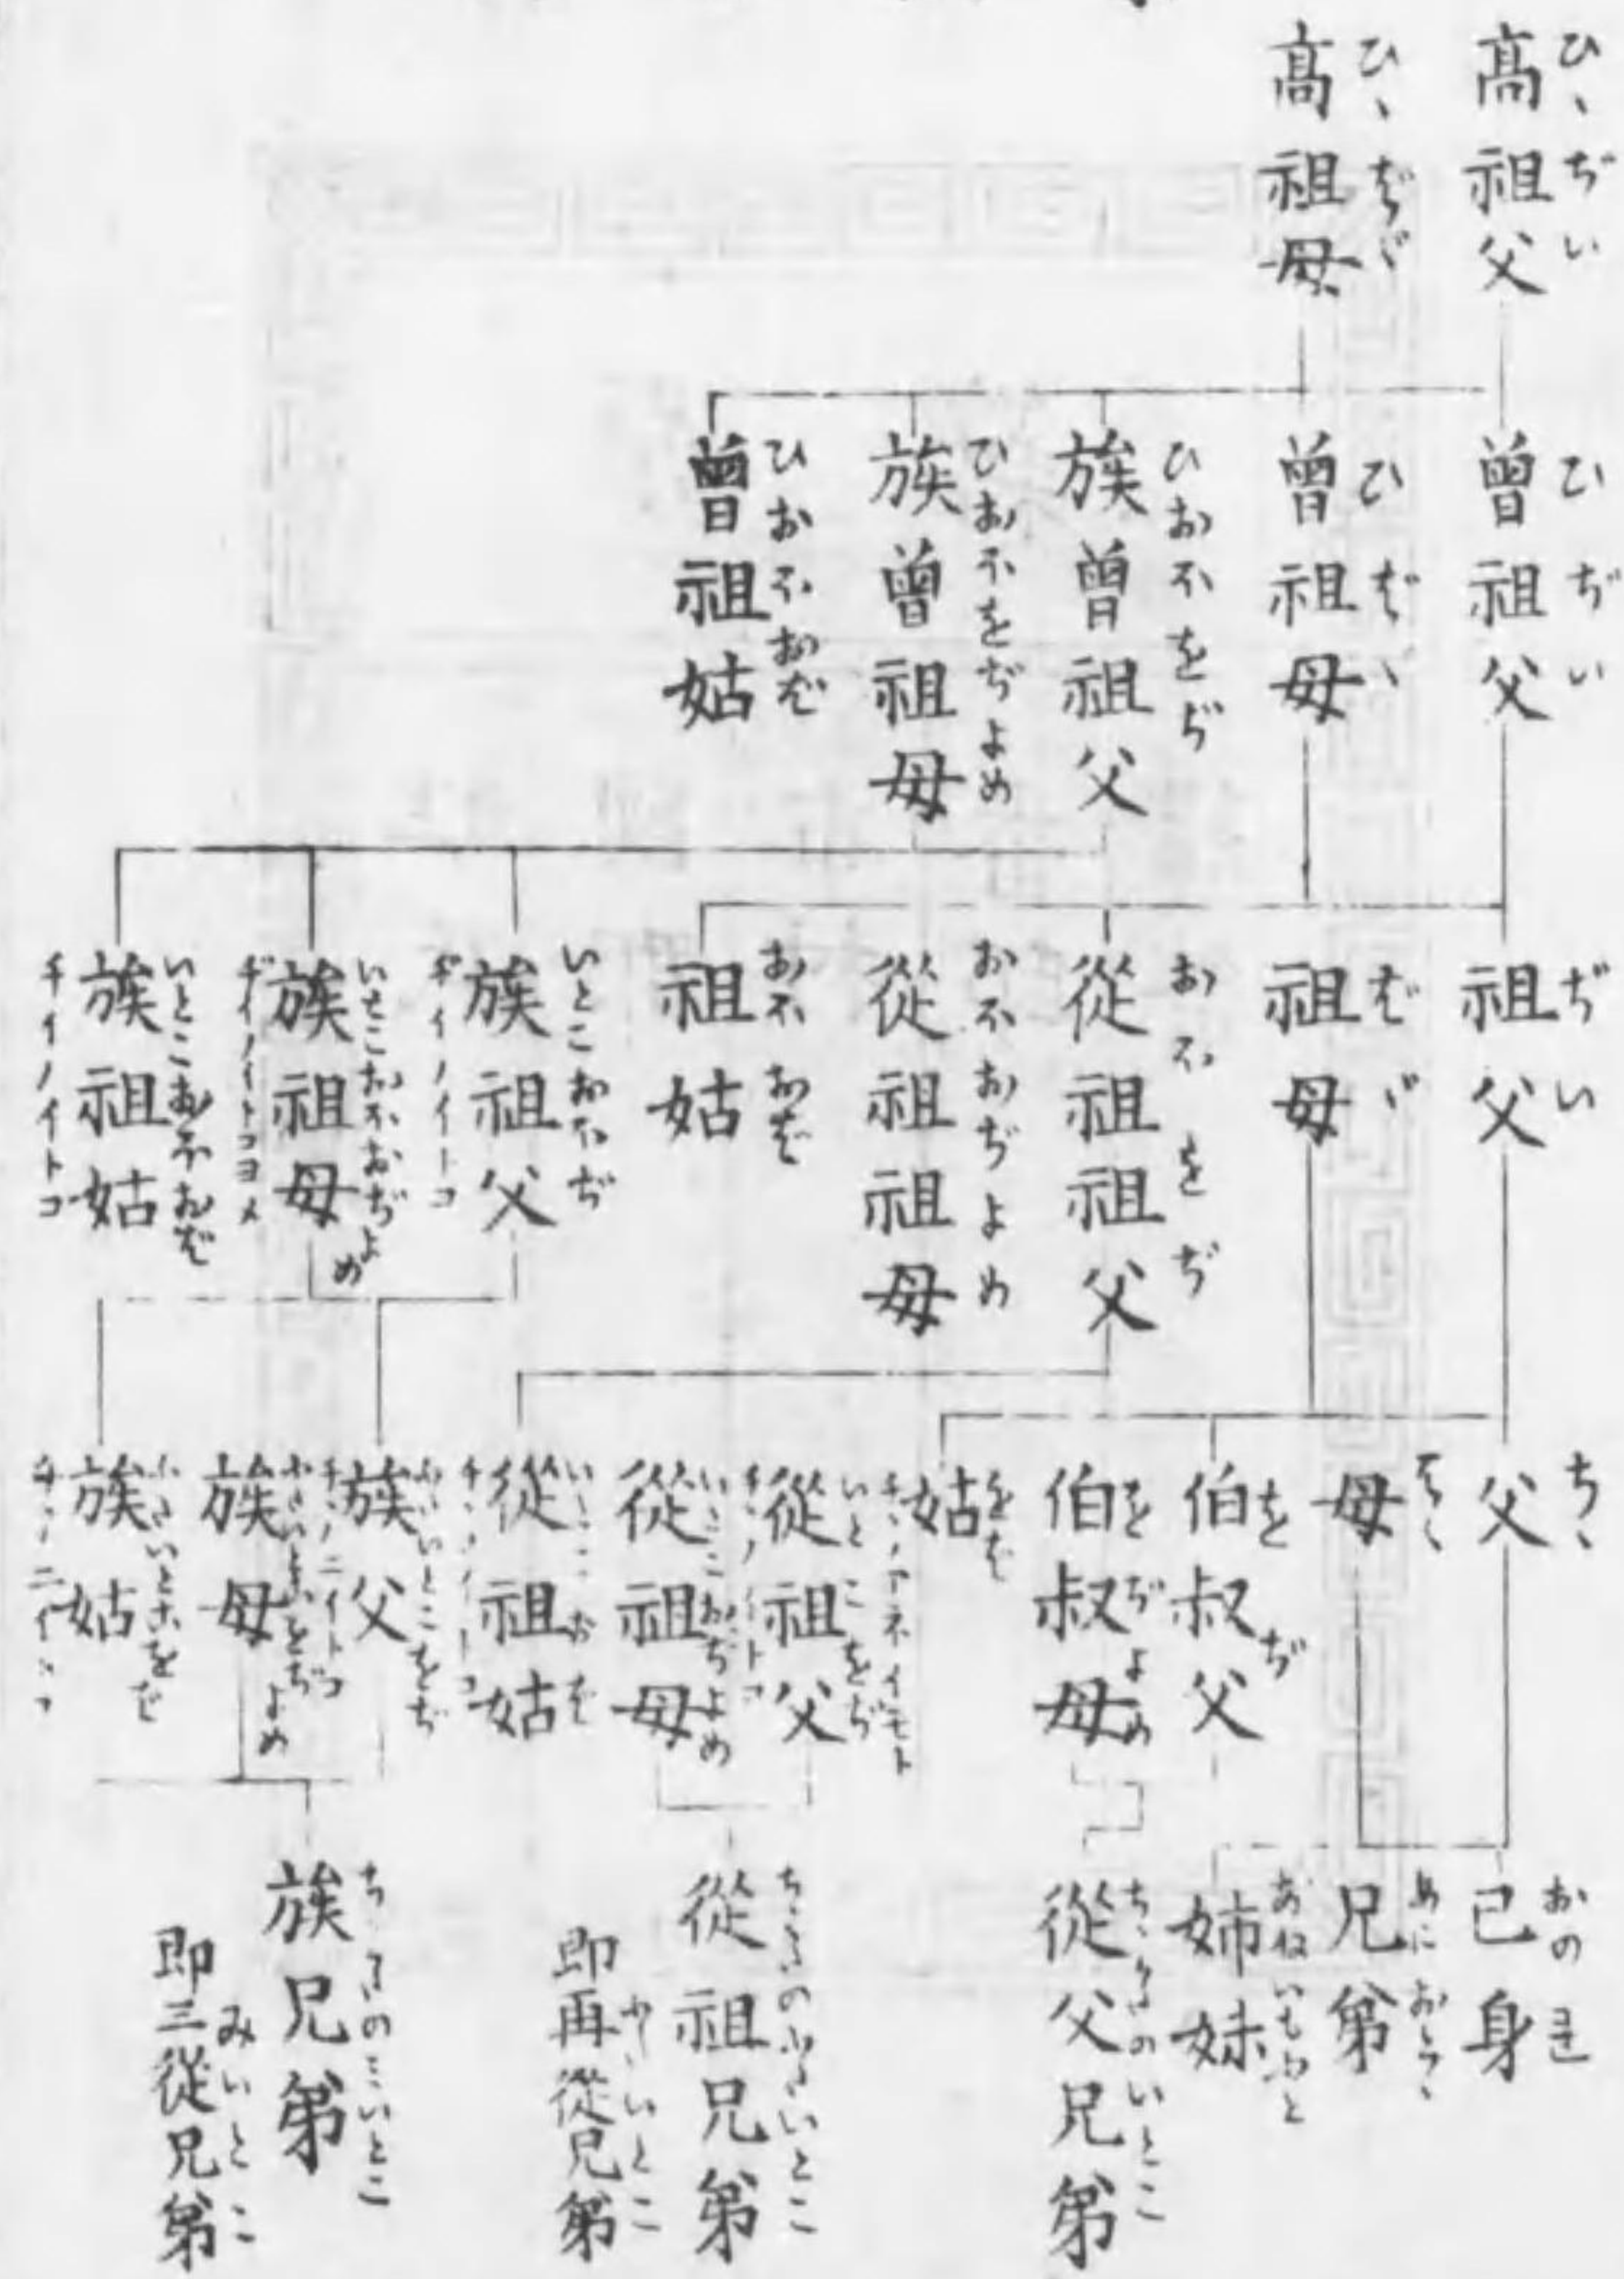 高祖父
ひゝぢい
高祖母
ひゝばゞ
曽祖父
ひぢい
曽祖母
ひばゝ
族曽祖父
ひおほをぢ
族曽祖母
ひおほをぢよめ
曽祖姑
ひおほおば
祖父
ぢい
祖母
ばゞ
從祖祖父
おほをぢ
從祖祖母
おほおぢよめ
祖姑
おほおば
族祖父
いとこおほぢ
ヂイノイトコ
族祖母
いとこおほおぢよめ
ヂイノイトコヨメ
族祖姑
いとこおほおば
チイノイトコ
父
ちゝ
母
はゝ
伯叔父
をぢ
伯叔母
をぢよめ
姑
をば
チヽノアネイモト
從祖父
いとこをぢ
チヽノイトコ
從祖母
いとこおぢよめ
從祖姑
いとこおば
チヽノイトコ
族父
いとこをぢ
族母
をぢよめ
族姑
いとこをば
己身
おのれ
兄弟
あにおとゝ
姉妹
あねいもふと
從父兄弟
いとこ
從祖兄弟
いとこ
即再從兄弟
いとこ
族兄弟
いとこ
即三從兄弟
みいとこ